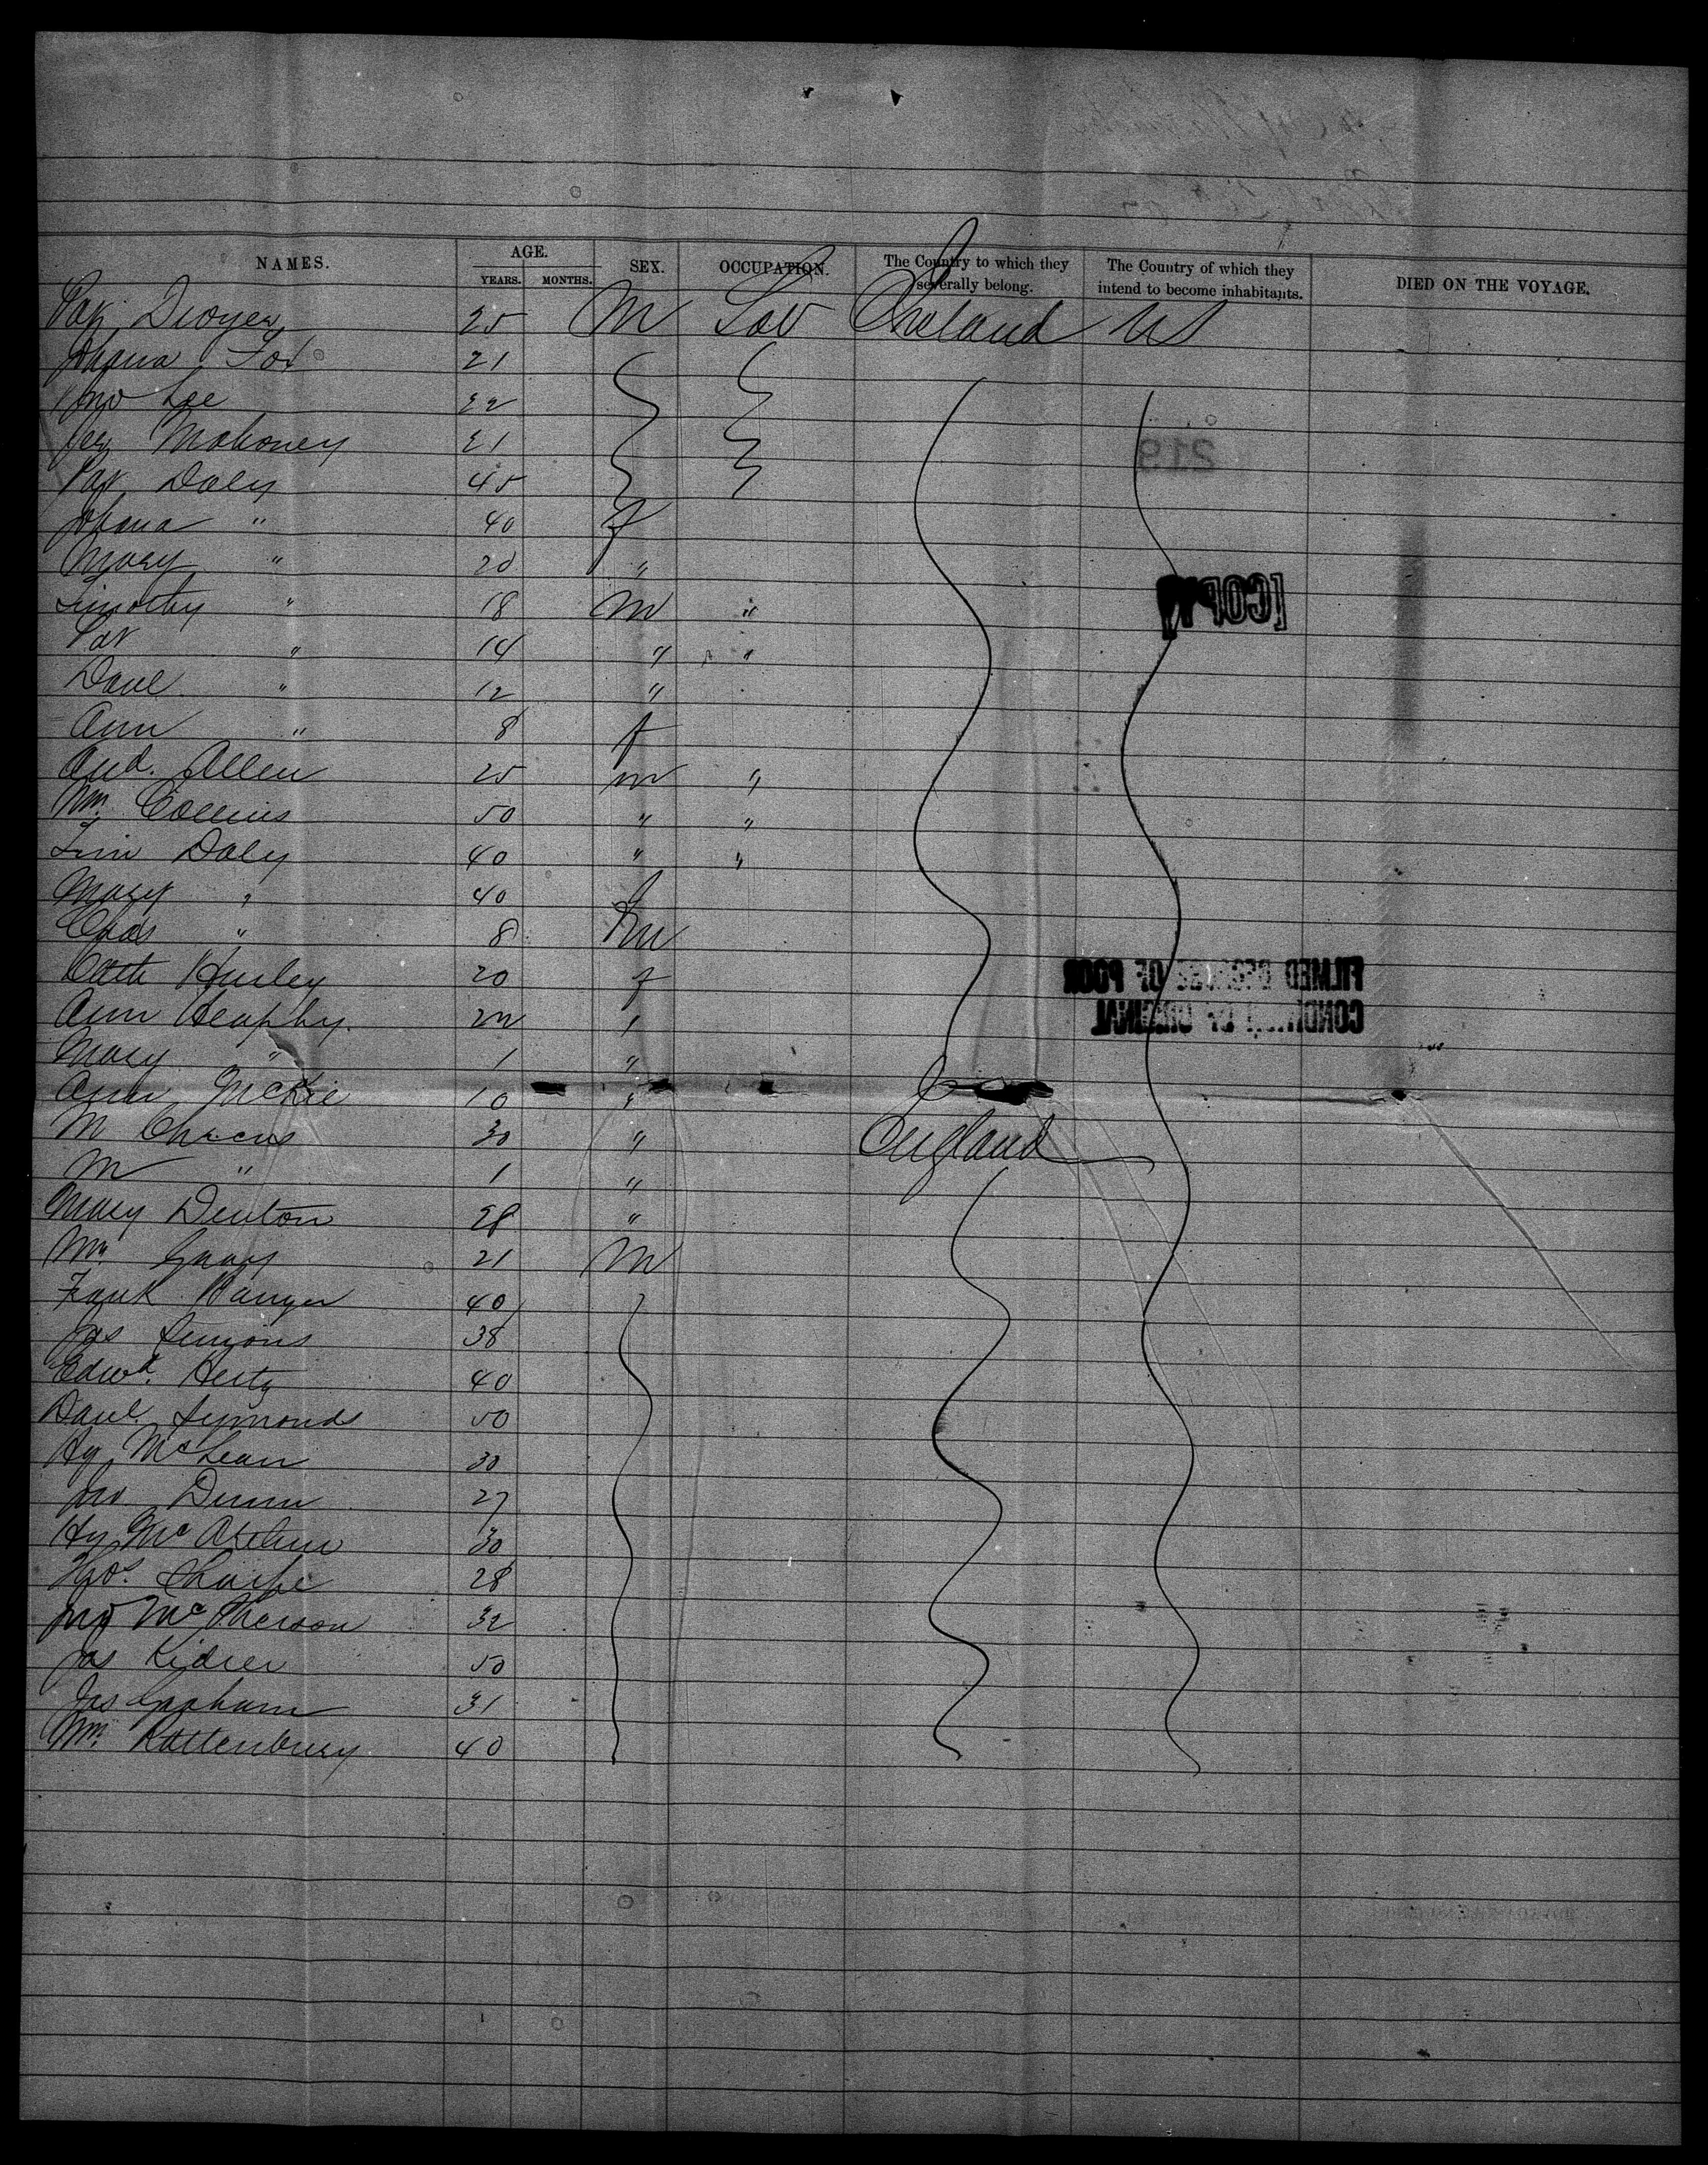 NAMES. AGE. SEX. OCCUPATION. The Country to which they severally belong. The Country of which they intend to become inhabitants. DIED ON THE VOYAGE.
YEARS. MONTHS.
Pat Dwyer 25 M Lab Ireland US
Johana Fox 21
Jno Lee 22
Jer Mahoney 21
Pat Daly 45
Johana " 40 f
Mary " 20 "
Timothy " 18 M "
Pat " 14 " "
Danl " 12 "
Ann " 8 f
And. Allen 25 m "
Wm. Collins 50 " "
Tim Daly 40 " "
Mary " 40 f
Chas " 8 m
Cath Hurley 20 f
Ann Heaphy. 22 "
Mary " 1 "
Ann McKie 10 "
M 30 " England
M " 1 "
Mary Denton 28 "
Wm. Gray 21 M
Frank 40
Jas Simions 38
Edwd. 40
Danl. Symonds 50
Hy McLean 30
Jno Dunn 27
Hy Mc 30
Thos. Sharpe 28
Jno McPherson 32
Jas 50
Jas Graham 31
Wm. Rattenbury 40
219
[COPY]
FILMED BECAUSE OF POOR
CONDITION OF ORIGINAL